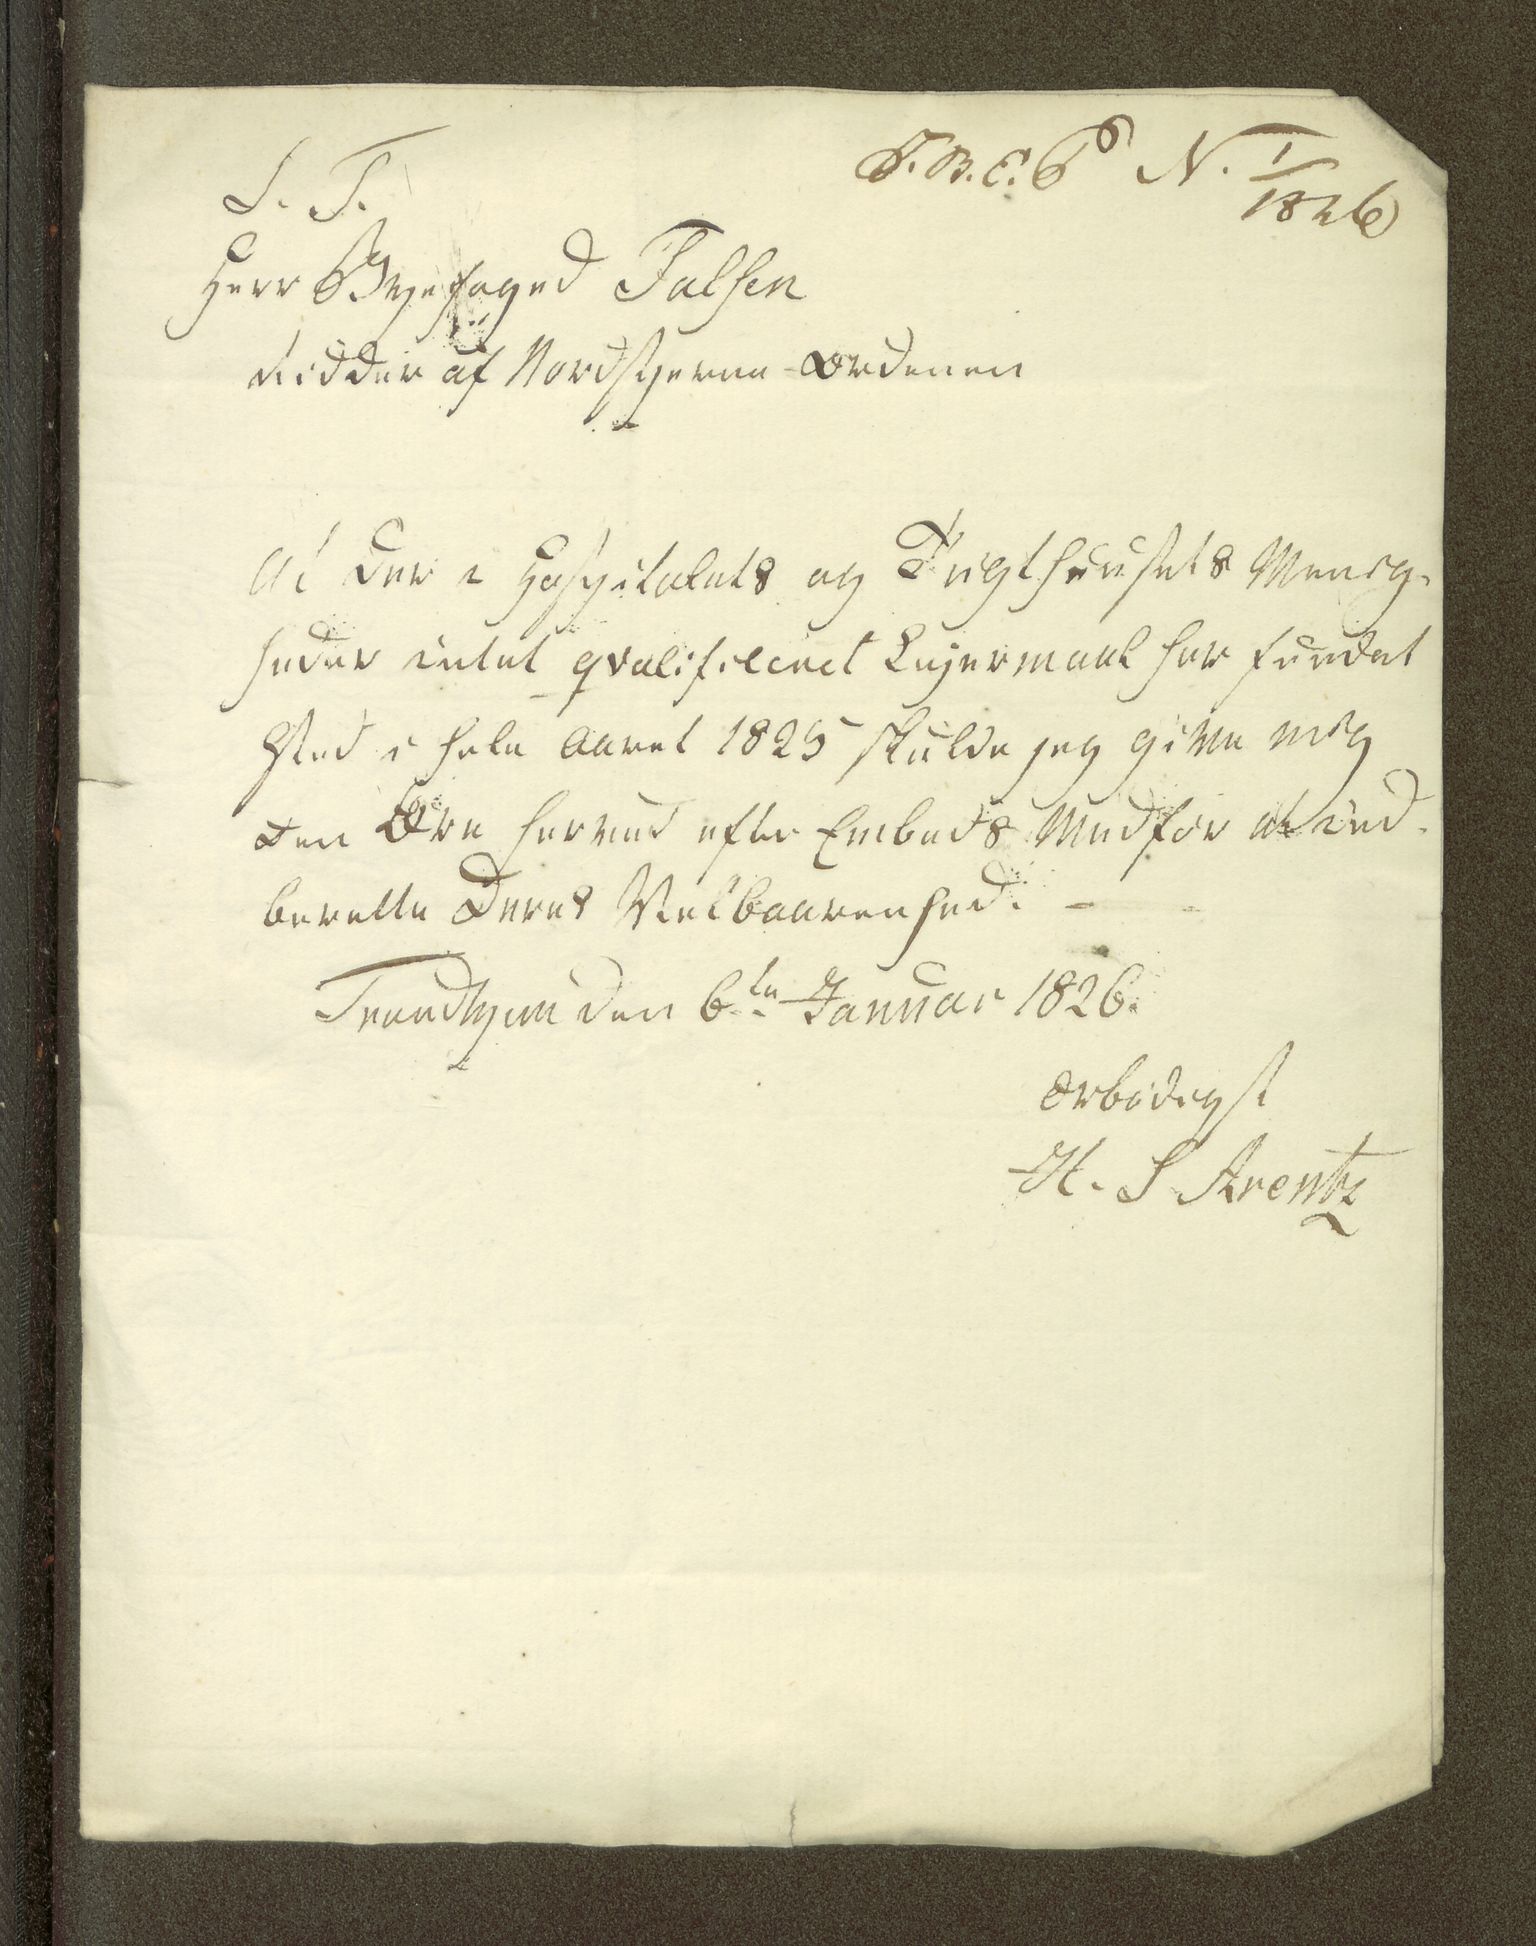 S. T.
T. B. C. P N. 1/1826
Herr Byefoged Falsen
Ridder af Nordstjerne-Ordenen
At der i Hospitalets og Tugthuusets Menig-
heder intet qvalificeret Leiermaal har fundet
Sted i hele Aaret 1825 skulde jeg give mig
den Ære herved efter Embeds Medfør at ind-
berette Deres Velbaarenhed. -
Trondhjem den 6te Januar 1826.
Ærbødigst
H. S Arentz